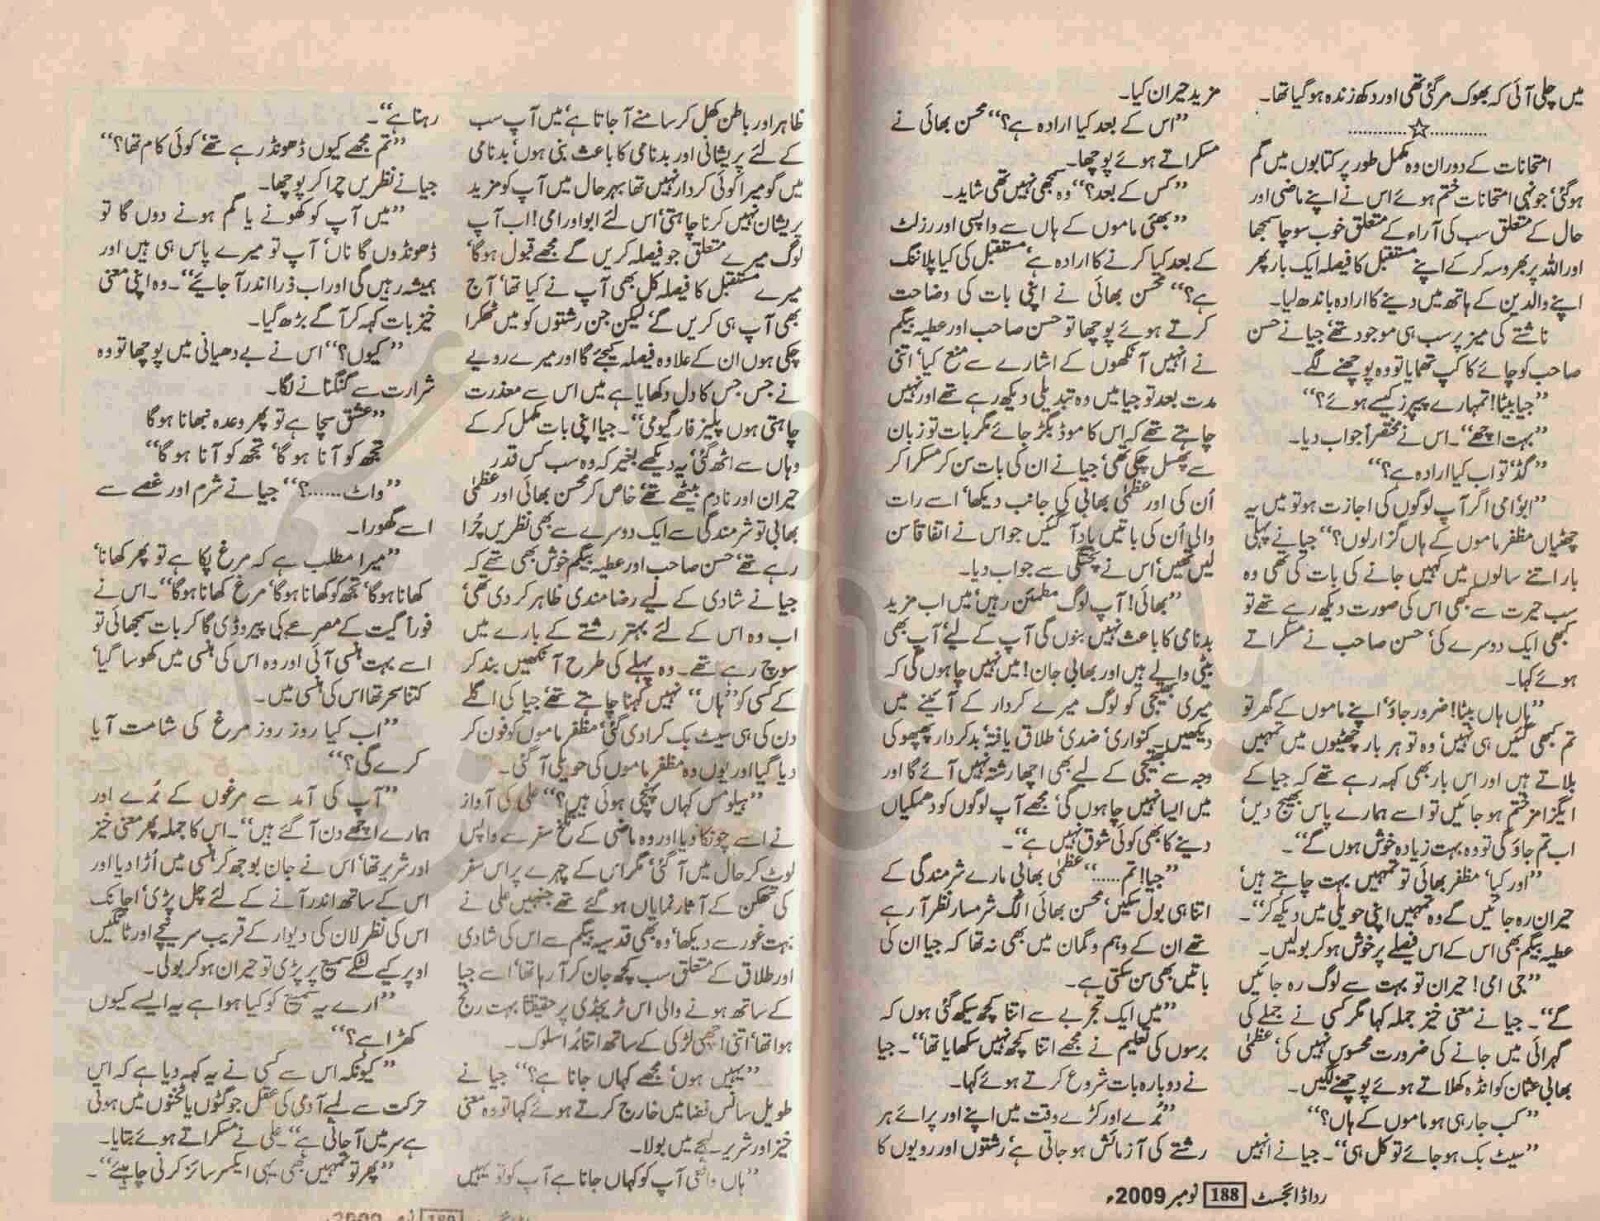 میں چلی آئی کہ بھوک مر گئی تھی اور دکھ زندہ ہو گیا تھا۔
............☆............
امتحانات کے دوران وہ مکمل طور پر کتابوں میں گم
ہو گئی‘ جونہی امتحانات ختم ہوئے اس نے اپنے ماضی اور
حال کے متعلق سب کی آراء کے متعلق خوب سوچا سمجھا
اور اللہ پر بھروسہ کر کے اپنے مستقبل کا فیصلہ ایک بار پھر
اپنے والدین کے ہاتھ میں دینے کا ارادہ باندھ لیا۔
ناشتے کی میز پر سب ہی موجود تھے‘ جیا نے حسن
صاحب کو چائے کا کپ تھمایا تو وہ پوچھنے لگے۔
’’جیا بیٹا! تمہارے پیپرز کیسے ہوئے؟‘‘
’’بہت اچھے‘‘۔ اس نے مختصراً جواب دیا۔
’’گڈ‘ تو اب کیا ارادہ ہے؟‘‘
’’ابو‘ امی اگر آپ لوگوں کی اجازت ہو تو میں یہ
چھٹیاں مظفر ماموں کے ہاں گزار لوں؟‘‘ جیا نے پہلی
بار اتنے سالوں میں کہیں جانے کی بات کی تھی وہ
سب حیرت سے کبھی اس کی صورت دیکھ رہے تھے تو
کبھی ایک دوسرے کی‘ حسن صاحب نے مسکراتے
ہوئے کہا۔
’’ہاں ہاں بیٹا! ضرور جاؤ‘ اپنے ماموں کے گھر تو
تم کبھی گئیں ہی نہیں‘ وہ تو ہر بار چھٹیوں میں تمہیں
بلاتے ہیں اور اس بار بھی کہہ رہے تھے کہ جیا کے
ایگزامز ختم ہو جائیں تو اسے ہمارے پاس بھیج دیں‘
اب تم جاؤ گی تو وہ بہت زیادہ خوش ہوں گے‘‘۔
’’اور کیا‘ مظفر بھائی تو تمہیں بہت چاہتے ہیں‘
حیران رہ جائیں گے وہ تمہیں اپنی حویلی میں دیکھ کر‘‘۔
عطیہ بیگم بھی اس کے اس فیصلے پر خوش ہو کر بولیں۔
’’جی امی! حیران تو بہت سے لوگ رہ جائیں
گے‘‘۔ جیا نے معنی خیز جملہ کہا مگر کسی نے جملے کی
گہرائی میں جانے کی ضرورت محسوس نہیں کی‘ عظمیٰ
بھابی عثمان کو انڈہ کھلاتے ہوئے پوچھنے لگیں۔
’’کب جا رہی ہو ماموں کے ہاں؟‘‘
’’سیٹ بک ہو جائے تو کل ہی‘‘۔ جیا نے انہیں
مزید حیران کیا۔
’’اس کے بعد کیا ارادہ ہے؟‘‘ محسن بھائی نے
مسکراتے ہوئے پوچھا۔
’’کس کے بعد؟‘‘ وہ سمجھی نہیں تھی شاید۔
’’بھئی ماموں کے ہاں سے واپسی اور رزلٹ
کے بعد کیا کرنے کا ارادہ ہے‘ مستقبل کی کیا پلاننگ
ہے؟‘‘ محسن بھائی نے اپنی بات کی وضاحت
کرتے ہوئے پوچھا تو حسن صاحب اور عطیہ بیگم
نے انہیں آنکھوں کے اشارے سے منع کیا‘ اتنی
مدت بعد تو جیا میں وہ تبدیلی دیکھ رہے تھے اور نہیں
چاہتے تھے کہ اس کا موڈ بگڑ جائے مگر بات تو زبان
سے پھسل چکی تھی‘ جیا نے ان کی بات سن کر مسکرا کر
اُن کی اور عظمیٰ بھابی کی جانب دیکھا‘ اسے رات
والی اُن کی باتیں یاد آ گئیں جو اس نے اتفاقاً سن
لیں تھیں‘ اس نے پختگی سے جواب دیا۔
’’بھائی! آپ لوگ مطمئن رہیں‘ میں اب مزید
بدنامی کا باعث نہیں بنوں گی آپ کے لیے‘ آپ بھی
بیٹی والے ہیں اور بھابی جان! میں نہیں چاہوں گی کہ
میری بھتیجی کو لوگ میرے کردار کے آئینے میں
دیکھیں۔ کنواری‘ ضدی‘ طلاق یافتہ‘ بدکردار پھپھو کی
وجہ سے بھتیجی کے لیے بھی اچھا رشتہ نہیں آئے گا اور
میں ایسا نہیں چاہوں گی‘ مجھے آپ لوگوں کو دھمکیاں
دینے کا بھی کوئی شوق نہیں ہے‘‘۔
’’جیا! تم.....‘‘ عظمیٰ بھابی مارے شرمندگی کے
اتنا ہی بول سکیں‘ محسن بھائی الگ شرمسار نظر آ رہے
تھے ان کے وہم و گمان میں بھی نہ تھا کہ جیا ان کی
باتیں بھی سن سکتی ہے۔
’’میں ایک تجربے سے اتنا کچھ سیکھ گئی ہوں کہ
برسوں کی تعلیم نے مجھے اتنا کچھ نہیں سکھایا تھا‘‘۔ جیا
نے دوبارہ بات شروع کرتے ہوئے کہا۔
’’بُرے اور کڑے وقت میں اپنے اور پرائے ہر
رشتے کی آزمائش ہو جاتی ہے‘ رشتوں اور رویوں کا
رِدا ڈائجسٹ 188 نومبر 2009ء
ظاہر اور باطن کھل کر سامنے آ جاتا ہے‘ میں آپ سب
کے لئے پریشانی اور بدنامی کا باعث بنی ہوں‘ بدنامی
میں گو میرا کوئی کردار نہیں تھا بہرحال میں آپ کو مزید
پریشان نہیں کرنا چاہتی‘ اس لئے ابو اور امی! اب آپ
لوگ میرے متعلق جو فیصلہ کریں گے مجھے قبول ہو گا‘
میرے مستقبل کا فیصلہ کل بھی آپ نے کیا تھا‘ آج
بھی آپ ہی کریں گے‘ لیکن جن رشتوں کو میں ٹھکرا
چکی ہوں ان کے علاوہ فیصلہ کیجئے گا اور میرے رویے
نے جس جس کا دل دکھایا ہے میں اس سے معذرت
چاہتی ہوں پلیز فارگیو می‘‘۔ جیا اپنی بات مکمل کر کے
وہاں سے اٹھ گئی‘ یہ دیکھے بغیر کہ وہ سب کس قدر
حیران اور نادم بیٹھے تھے‘ خاص کر محسن بھائی اور عظمیٰ
بھابی تو شرمندگی سے ایک دوسرے سے بھی نظریں چُرا
رہے تھے‘ حسن صاحب اور عطیہ بیگم خوش بھی تھے کہ
جیا نے شادی کے لیے رضامندی ظاہر کر دی تھی‘
اب وہ اس کے لئے بہتر رشتے کے بارے میں
سوچ رہے تھے۔ وہ پہلے کی طرح آنکھیں بند کر
کے کسی کو ’’ہاں‘‘ نہیں کہنا چاہتے تھے‘ جیا کی اگلے
دن کی ہی سیٹ بک کرا دی گئی‘ مظفر ماموں کو فون کر
دیا گیا اور یوں وہ مظفر ماموں کی حویلی آ گئی۔
’’ہیلو مس کہاں پہنچی ہوئی ہیں؟‘‘ علی کی آواز
نے اسے چونکا دیا اور وہ ماضی کے تلخ سفر سے واپس
لوٹ کر حال میں آ گئی‘ مگر اس کے چہرے پر اس سفر
کی تھکن کے آثار نمایاں ہو گئے تھے جنہیں علی نے
بہت غور سے دیکھا‘ وہ بھی قدسیہ بیگم سے اس کی شادی
اور طلاق کے متعلق سب کچھ جان کر آ رہا تھا‘ اسے جیا
کے ساتھ ہونے والی اس ٹریجڈی پر حقیقتاً بہت رنج
ہوا تھا‘ اتنی اچھی لڑکی کے ساتھ اتنا بُرا سلوک۔
’’یہیں ہوں‘ مجھے کہاں جانا ہے؟‘‘ جیا نے
طویل سانس فضا میں خارج کرتے ہوئے کہا تو وہ معنی
خیز اور شریر لہجے میں بولا۔
’’ہاں واقعی آپ کو کہاں جانا ہے آپ کو تو یہیں
رہنا ہے‘‘۔
’’تم مجھے کیوں ڈھونڈ رہے تھے‘ کوئی کام تھا؟‘‘
جیا نے نظریں چرا کر پوچھا۔
’’میں آپ کو کھونے یا گم ہونے دوں گا تو
ڈھونڈوں گا ناں‘ آپ تو میرے پاس ہی ہیں اور
ہمیشہ رہیں گی اور اب ذرا اندر آ جائیے‘‘۔ وہ اپنی معنی
خیز بات کہہ کر آگے بڑھ گیا۔
’’کیوں؟‘‘ اس نے بے دھیانی میں پوچھا تو وہ
شرارت سے گنگنانے لگا۔
’’عشق سچا ہے تو پھر وعدہ نبھانا ہو گا
تجھ کو آنا ہو گا‘ تجھ کو آنا ہو گا‘‘
’’واٹ......؟‘‘ جیا نے شرم اور غصے سے
اسے گھورا۔
’’میرا مطلب ہے کہ مرغ پکا ہے تو پھر کھانا‘
کھانا ہو گا‘ تجھ کو کھانا ہو گا‘ مرغ کھانا ہو گا‘‘۔ اس نے
فوراً گیت کے مصرعے کی پیروڈی گا کر بات سمجھائی تو
اسے بہت ہنسی آئی اور وہ اس کی ہنسی میں کھو سا گیا‘
کتنا سحر تھا اس کی ہنسی میں۔
’’اب کیا روز روز مرغ کی شامت آیا
کرے گی؟‘‘
’’آپ کی آمد سے مرغوں کے بُرے اور
ہمارے اچھے دن آ گئے ہیں‘‘۔ اس کا جملہ پھر معنی خیز
اور شریر تھا‘ اس نے جان بوجھ کر ہنسی میں اُڑا دیا اور
اس کے ساتھ اندر آنے کے لئے چل پڑی‘ اچانک
اس کی نظر لان کی دیوار کے قریب سر نیچے اور ٹانگیں
اوپر کیے لٹکے سمیع پر پڑی تو حیران ہو کر بولی۔
’’ارے یہ سمیع کو کیا ہوا ہے یہ ایسے کیوں
کھڑا ہے؟‘‘
’’کیونکہ اس سے کسی نے یہ کہہ دیا ہے کہ اس
حرکت سے لمبے آدمی کی عقل جو گٹوں یا ٹخنوں میں ہوتی
ہے سر میں آ جاتی ہے‘‘۔ علی نے مسکراتے ہوئے بتایا۔
’’پھر تو تمہیں بھی یہی ایکسرسائز کرنی چاہیئے‘‘۔